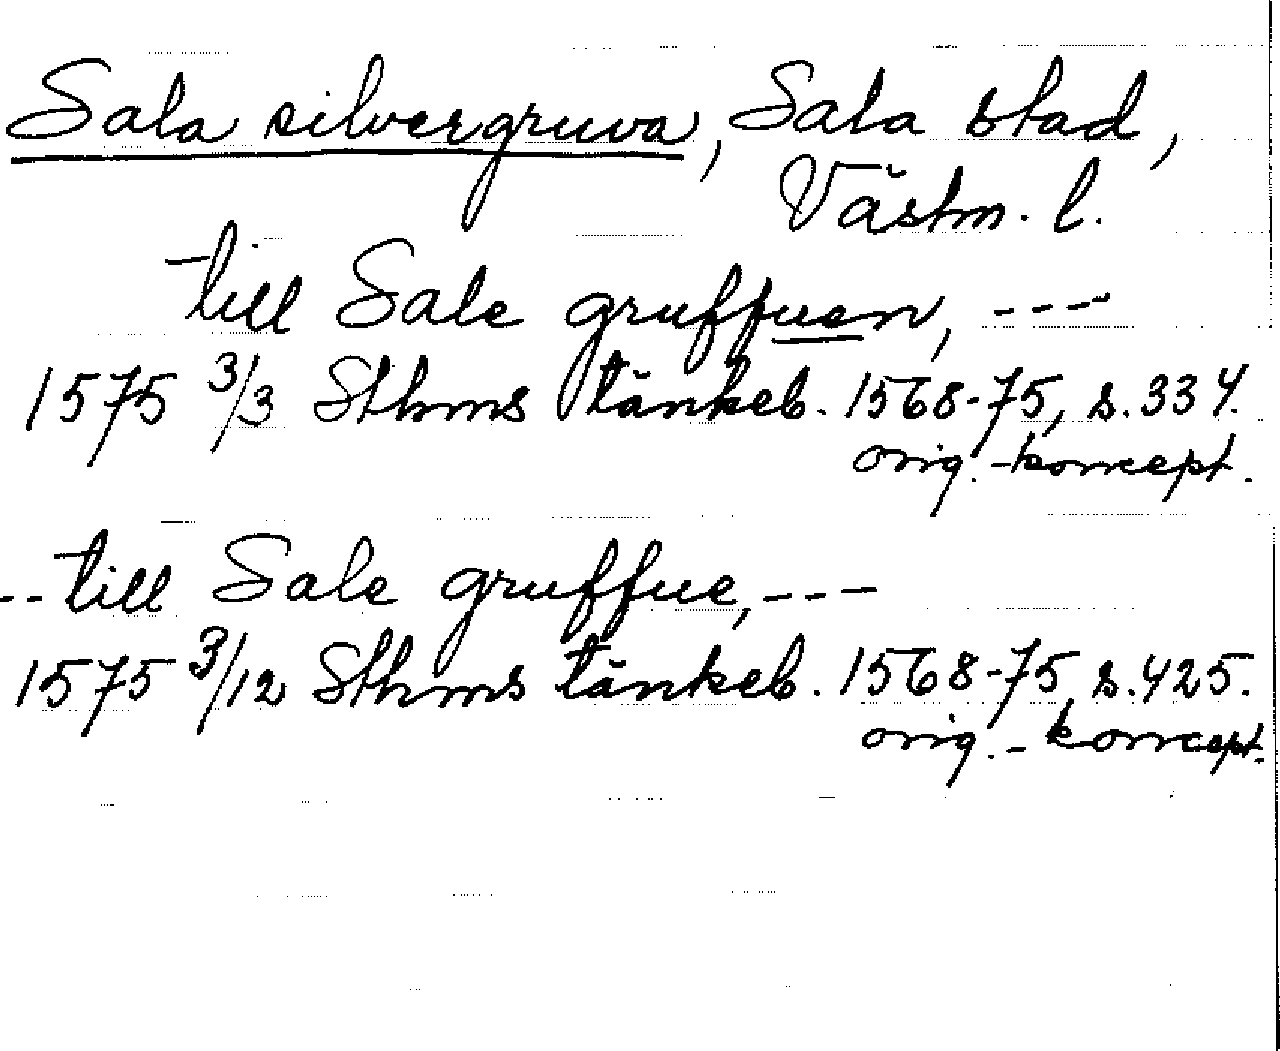 Sala silvergruva, Sala stad,
Västm. l.
till Sale gruffuen, ---
1575 3/3 Sthms tänkeb. 1568-75, s. 334.
orig.-koncept.
-- till Sale gruffue, ---
1575 3/12 Sthms tänkeb. 1568-75, s. 425.
orig.-koncept.